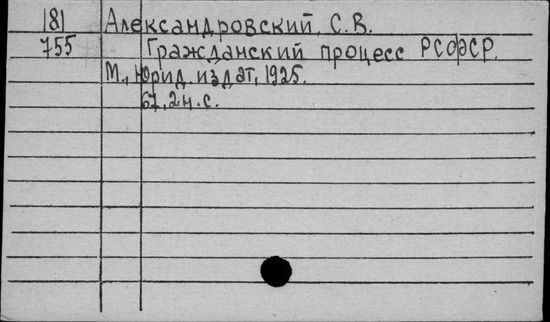 181 Александровский, С.В.
755 Гражданский процесс РСФСР.
М., Юрид. издат, 1925.
67, 2 н. с.